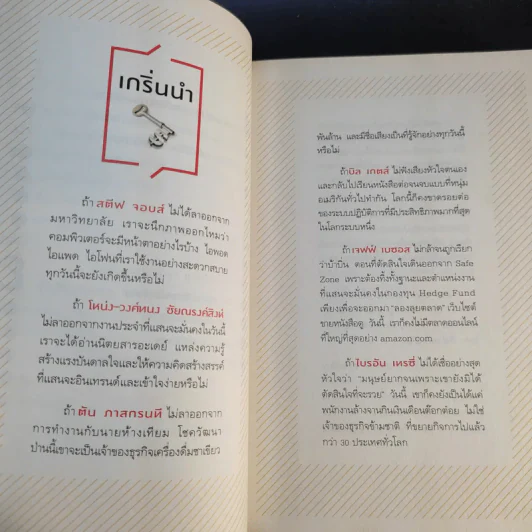 เกริ่นนำ
ถ้า สตีฟ จอบส์ ไม่ได้ลาออกจาก
มหาวิทยาลัย เราจะนึกภาพออกไหมว่า
คอมพิวเตอร์จะมีหน้าตาอย่างไรบ้าง ไอพอด
ไอแพด ไอโฟนที่เราใช้งานอย่างสะดวกสบาย
ทุกวันนี้จะยังเกิดขึ้นหรือไม่
ถ้า โหน่ง-วงศ์ทนง ชัยณรงค์สิงห์
ไม่ลาออกจากงานประจำที่แสนจะมั่นคงในวันนี้
เราจะได้อ่านนิตยสารอะเดย์ แหล่งความรู้
สร้างแรงบันดาลใจและให้ความคิดสร้างสรรค์
ที่แสนจะอินเทรนด์และเข้าใจง่ายหรือไม่
ถ้า ตัน ภาสกรนที ไม่ลาออกจาก
การทำงานกับนายห้างเทียม โชควัฒนา
ปานนี้เขาจะเป็นเจ้าของธุรกิจเครื่องดื่มชาเขียว
พันล้าน และมีชื่อเสียงเป็นที่รู้จักอย่างทุกวันนี้
หรือไม่
ถ้า บิล เกตส์ ไม่ฟังเสียงหัวใจตนเอง
และกลับไปเรียนหนังสือต่อจนจบแบบที่หนุ่ม
อเมริกันทั่วไปทำกัน โลกนี้ก็คงขาดรอยต่อ
ของระบบปฏิบัติการที่มีประสิทธิภาพมากที่สุด
ในโลกระบบหนึ่ง
ถ้า เจฟฟ์ เบซอส ไม่กล้าจนถูกเรียก
ว่าบ้าบิ่น ตอนที่ตัดสินใจเดินออกจาก Safe
Zone เพราะต้องทิ้งทั้งฐานะและตำแหน่งงาน
ที่แสนจะมั่นคงในกองทุน Hedge Fund
เพียงเพื่อจะออกมา “ลองลุยตลาด” เว็บไซต์
ขายหนังสือดู วันนี้ เราก็คงไม่มีตลาดออนไลน์
ที่ใหญ่ที่สุดอย่าง amazon.com
ถ้า ไบรอัน เทรซี่ ไม่ได้เชื่ออย่างสุด
หัวใจว่า “มนุษย์ยากจนเพราะเขายังมิได้
ตัดสินใจที่จะรวย” วันนี้ เขาก็คงยังเป็นได้แค่
พนักงานล้างจานกินเงินเดือนต๊อกต๋อย ไม่ใช่
เจ้าของธุรกิจข้ามชาติ ที่ขยายกิจการไปแล้ว
กว่า 30 ประเทศทั่วโลก